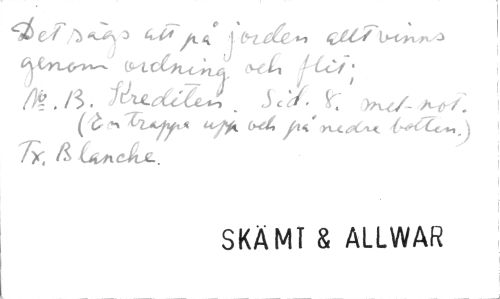 Det sägs att på jorden allt vinns
genom ordning och flit;
No. 13. Krediten. Sid. 8. met-not.
(En trappa upp och på nedra botten.)
Tx. Blanche.
SKÄMT & ALLWAR